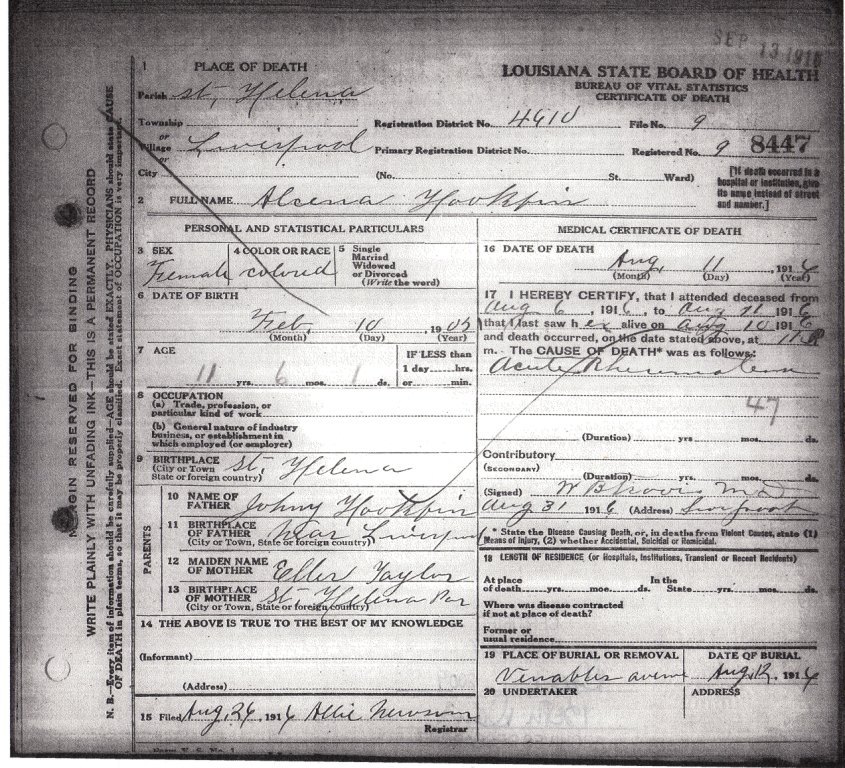 SEP 13 1916
1 PLACE OF DEATH
LOUISIANA STATE BOARD OF HEALTH
BUREAU OF VITAL STATISTICS
CERTIFICATE OF DEATH
Parish St. Helena
Township
or
Village Liverpool
or
City
Registration District No. 4610 File No. 9
Primary Registration District No. Registered No. 9 8447
(No. St. Ward)
[If death occurred in a
hospital or institution, give
its name instead of street
and number.]
2 FULL NAME Alcena Hookfin
PERSONAL AND STATISTICAL PARTICULARS
3 SEX
Female
4 COLOR OR RACE
colored
5 Single
Married
Widowed
or Divorced
(Write the word)
6 DATE OF BIRTH
Feb. 10, 1905
(Month) (Day) (Year)
7 AGE
11 yrs. 6 mos. 1 ds.
IF LESS than
1 day hrs.
or min.
8 OCCUPATION
(a) Trade, profession, or
particular kind of work
(b) General nature of industry
business, or establishment in
which employed (or employer)
9 BIRTHPLACE
(City or Town
State or foreign country)
St. Helena
PARENTS
10 NAME OF
FATHER
Johny Hookfin
11 BIRTHPLACE
OF FATHER
(City or Town, State or foreign country)
near Liverpool
12 MAIDEN NAME
OF MOTHER
Eller Taylor
13 BIRTHPLACE
OF MOTHER
(City or Town, State or foreign country)
St. Helena Par
14 THE ABOVE IS TRUE TO THE BEST OF MY KNOWLEDGE
(Informant)
(Address)
15 Filed Aug. 26, 1916 Allie Newsom
Registrar
MEDICAL CERTIFICATE OF DEATH
16 DATE OF DEATH
Aug. 11, 1916
(Month) (Day) (Year)
17 I HEREBY CERTIFY, that I attended deceased from
Aug 6, 1916, to Aug 11 1916
that I last saw her alive on Aug 10 1916
and death occurred, on the date stated above, at 11
m. The CAUSE OF DEATH* was as follows:
Acute Rheumatism
47
(Duration) yrs mos. ds.
Contributory
(SECONDARY)
(Duration) yrs. mos. ds.
(Signed) W B M D
Aug 31 1916 (Address) Liverpool
* State the Disease Causing Death, or, in deaths from Violent Causes, state (1)
Means of Injury, (2) whether Accidental, Suicidal or Homicidal.
18 LENGTH OF RESIDENCE (or Hospitals, Institutions, Transient or Recent Residents)
At place
of death yrs. mos. ds.
In the
State yrs. mos. ds.
Where was disease contracted
if not at place of death?
Former or
usual residence
19 PLACE OF BURIAL OR REMOVAL
Venables
DATE OF BURIAL
Aug. 12, 1916
20 UNDERTAKER
ADDRESS
MARGIN RESERVED FOR BINDING
WRITE PLAINLY WITH UNFADING INK—THIS IS A PERMANENT RECORD
N. B.—Every item of information should be carefully supplied—AGE should be stated EXACTLY. PHYSICIANS should state CAUSE
OF DEATH in plain terms, so that it may be properly classified. Exact statement of OCCUPATION is very important.